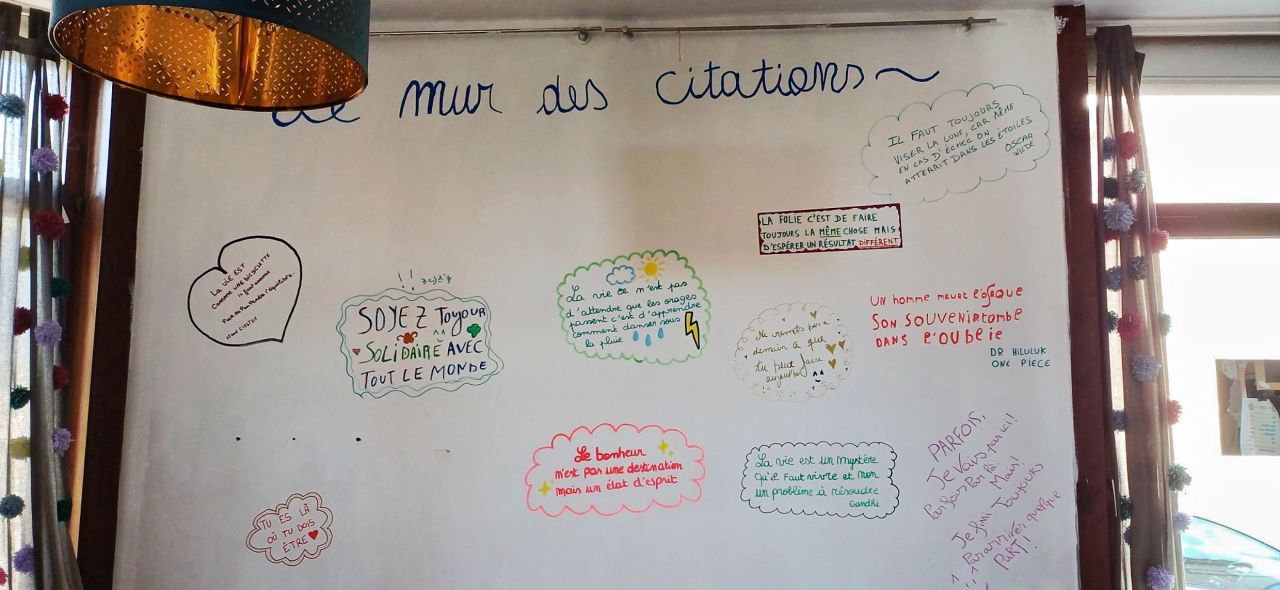 Le mur des citations
IL FAUT TOUJOURS
VISER LA LUNE, CAR MÊME
EN CAS D'ÉCHEC ON
ATTERRIT DANS LES ÉTOILES
OSCAR
WILDE
LA FOLIE C'EST DE FAIRE
TOUJOURS LA MÊME CHOSE MAIS
D'ESPÉRER UN RÉSULTAT DIFFÉRENT
LA VIE EST
COMME UNE BICYCLETTE
il faut avancer
Pour ne pas perdre l'équilibre
SOYEZ Toujour
SOLIDAIRE AVEC
TOUT LE MONDE
La vie ce n'est pas
d'attendre que les orages
passent c'est d'apprendre
comment danser sous
la pluie
Ne remets pas a
demain à que
tu peut faire
aujourd'hui
Un homme meurt lorsque
Son Souvenir tombe
DANS l'OUblie
DR HILULUK
ONE PIECE
Le bonheur
n'est pas une destination
mais un état d'esprit
La vie est un mystère
qu'il faut vivre et non
un problème à résoudre
Gandhi
PARFOIS,
Je Vais par ici!
Parfois Par là.
Mais!
Je fini Toujours
Par arrivé, quelque
PaRT!
TU ES LÀ
OÙ TU DOIS
ÊTRE